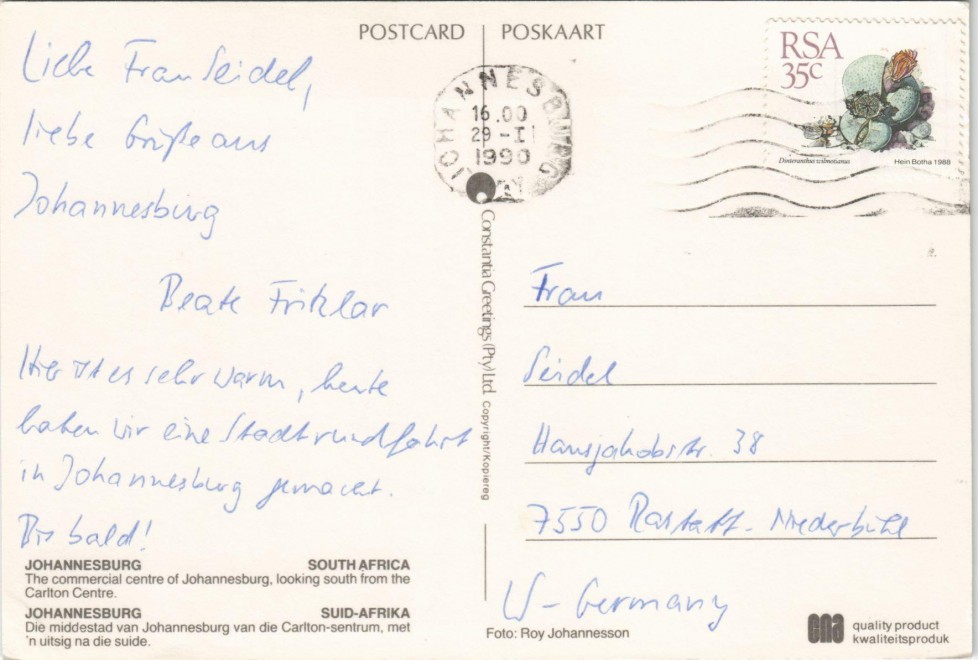 POSTCARD POSKAART
Liebe Frau Seidel,
liebe Grüße aus
Johannesburg
Beate Fritzlar
Hier ist es sehr warm, heute
haben wir eine Stadtrundfahrt
in Johannesburg gemacht.
Bis bald!
JOHANNESBURG SOUTH AFRICA
The commercial centre of Johannesburg, looking south from the
Carlton Centre.
JOHANNESBURG SUID-AFRIKA
Die middestad van Johannesburg van die Carlton-sentrum, met
'n uitsig na die suide.
JOHANNESBURG
16.00
29 -I
1990
Constantia Greetings (Pty) Ltd. Copyright/Kopiereg
RSA
35c
Dinteranthus wilmotianus Hein Botha 1988
Frau
Seidel
Hansjakobstr. 38
7550 Rastatt-Niederbühl
W-Germany
Foto: Roy Johannesson
cna quality product
kwaliteitsproduk